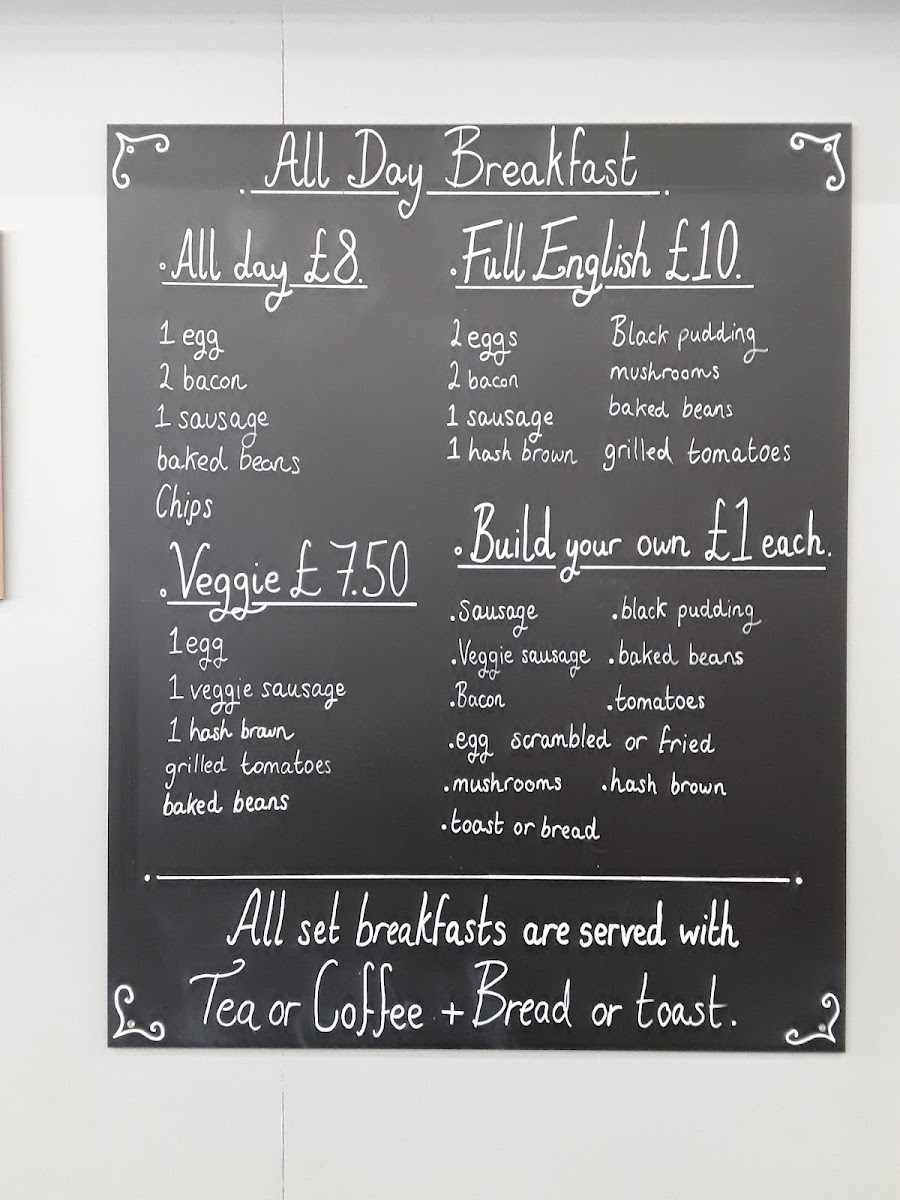 All Day Breakfast
All day £8.
1 egg
2 bacon
1 sausage
baked beans
Chips
Veggie £7.50
1 egg
1 veggie sausage
1 hash brown
grilled tomatoes
baked beans
Full English £10.
2 eggs
2 bacon
1 sausage
1 hash brown
Black pudding
mushrooms
baked beans
grilled tomatoes
Build your own £1 each.
.Sausage .black pudding
.Veggie sausage .baked beans
.Bacon .tomatoes
.egg scrambled or fried
.mushrooms .hash brown
.toast or bread
All set breakfasts are served with
Tea or Coffee + Bread or toast.